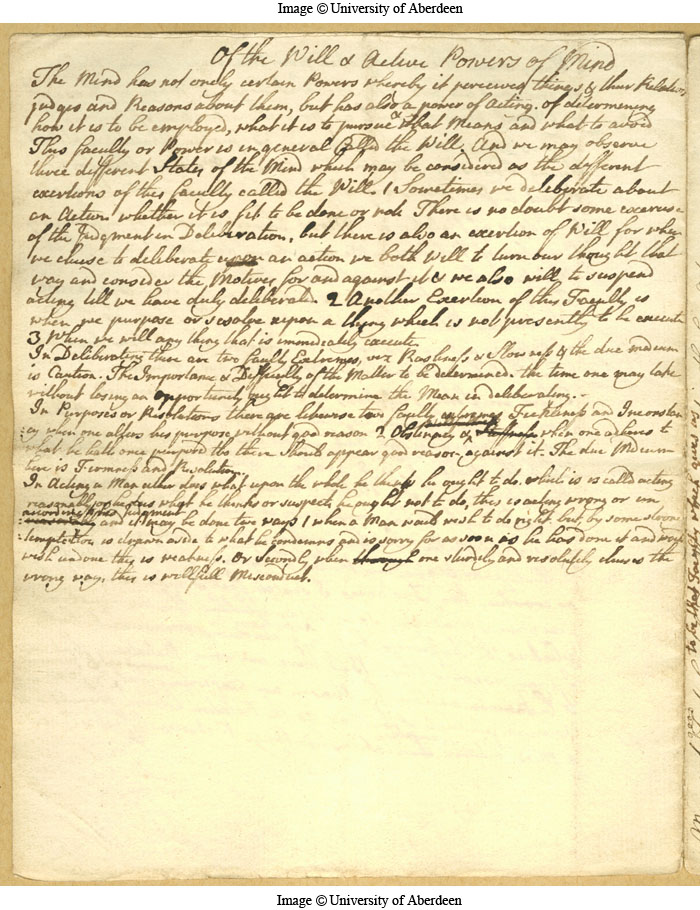 Image © University of Aberdeen
Of the Will & Active Powers of Mind
The Mind has not onely certain Powers whereby it perceives things & their Relations
judges and Reasons about them, but has also a power of Acting, of determining
how it is to be employed, what it is to pursue & what Means and what to avoid
This faculty or Power is in general called the Will. And we may observe
three different States of the Mind which may be considered as the different
exertions of this faculty called the Will. 1 Sometimes we deliberate about
an Action whether it is fit to be done or not. There is no doubt some exercise
of the Judgment in Deliberation, but there is also an exertion of Will for when
we chuse to deliberate upon an action we both Will to turn our thought that
way and consider the Motives for and against it & we also will to suspend
acting till we have duly deliberated. 2 Another Exertion of this Faculty is
when we purpose or resolve upon a thing which is not presently to be execute
3 When we will any thing that is immediately execute.
In Deliberating there are two faulty Extremes, viz Rashness & Slowness & the due medium
is Caution. The Importance & Difficulty of the Matter to be determined. the time one may take
without losing an opportunity ought to determine the Man in deliberating.
In Purposes or Resolutions there are likewise two faulty extremes Fickleness and Inconstan
cy when one alters his purpose without good reason 2 Obstinacy or when one adheres to
what he hath once purposd tho there should appear good reason against it. The due Medium
here is Firmness and Resolution.
In Acting a Man either does what upon the whole he thinks he ought to do, which is calld acting
reasonably or he does what he thinks or suspects he ought not to do, this is acting wrong or un
and it may be done two ways 1 when a Man would wish to do right but by some strong
temptation is drawn aside to what he condemns and is sorry for as soon as he has done it and would
wish undone this is weakness. Or Secondly, when through one sturdily and resolutely chuses the
wrong way, this is willfull Misconduct.
to be that Faculty which gives us
Image © University of Aberdeen